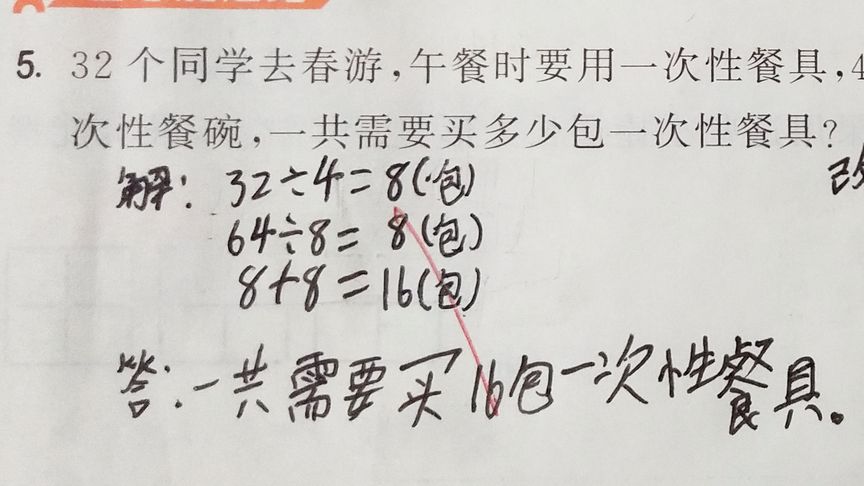 5. 32 个同学去春游,午餐时要用一次性餐具,4
次性餐碗,一共需要买多少包一次性餐具?
解: 32÷4=8(包)
64÷8=8(包)
8+8=16(包)
答:一共需要买16包一次性餐具。